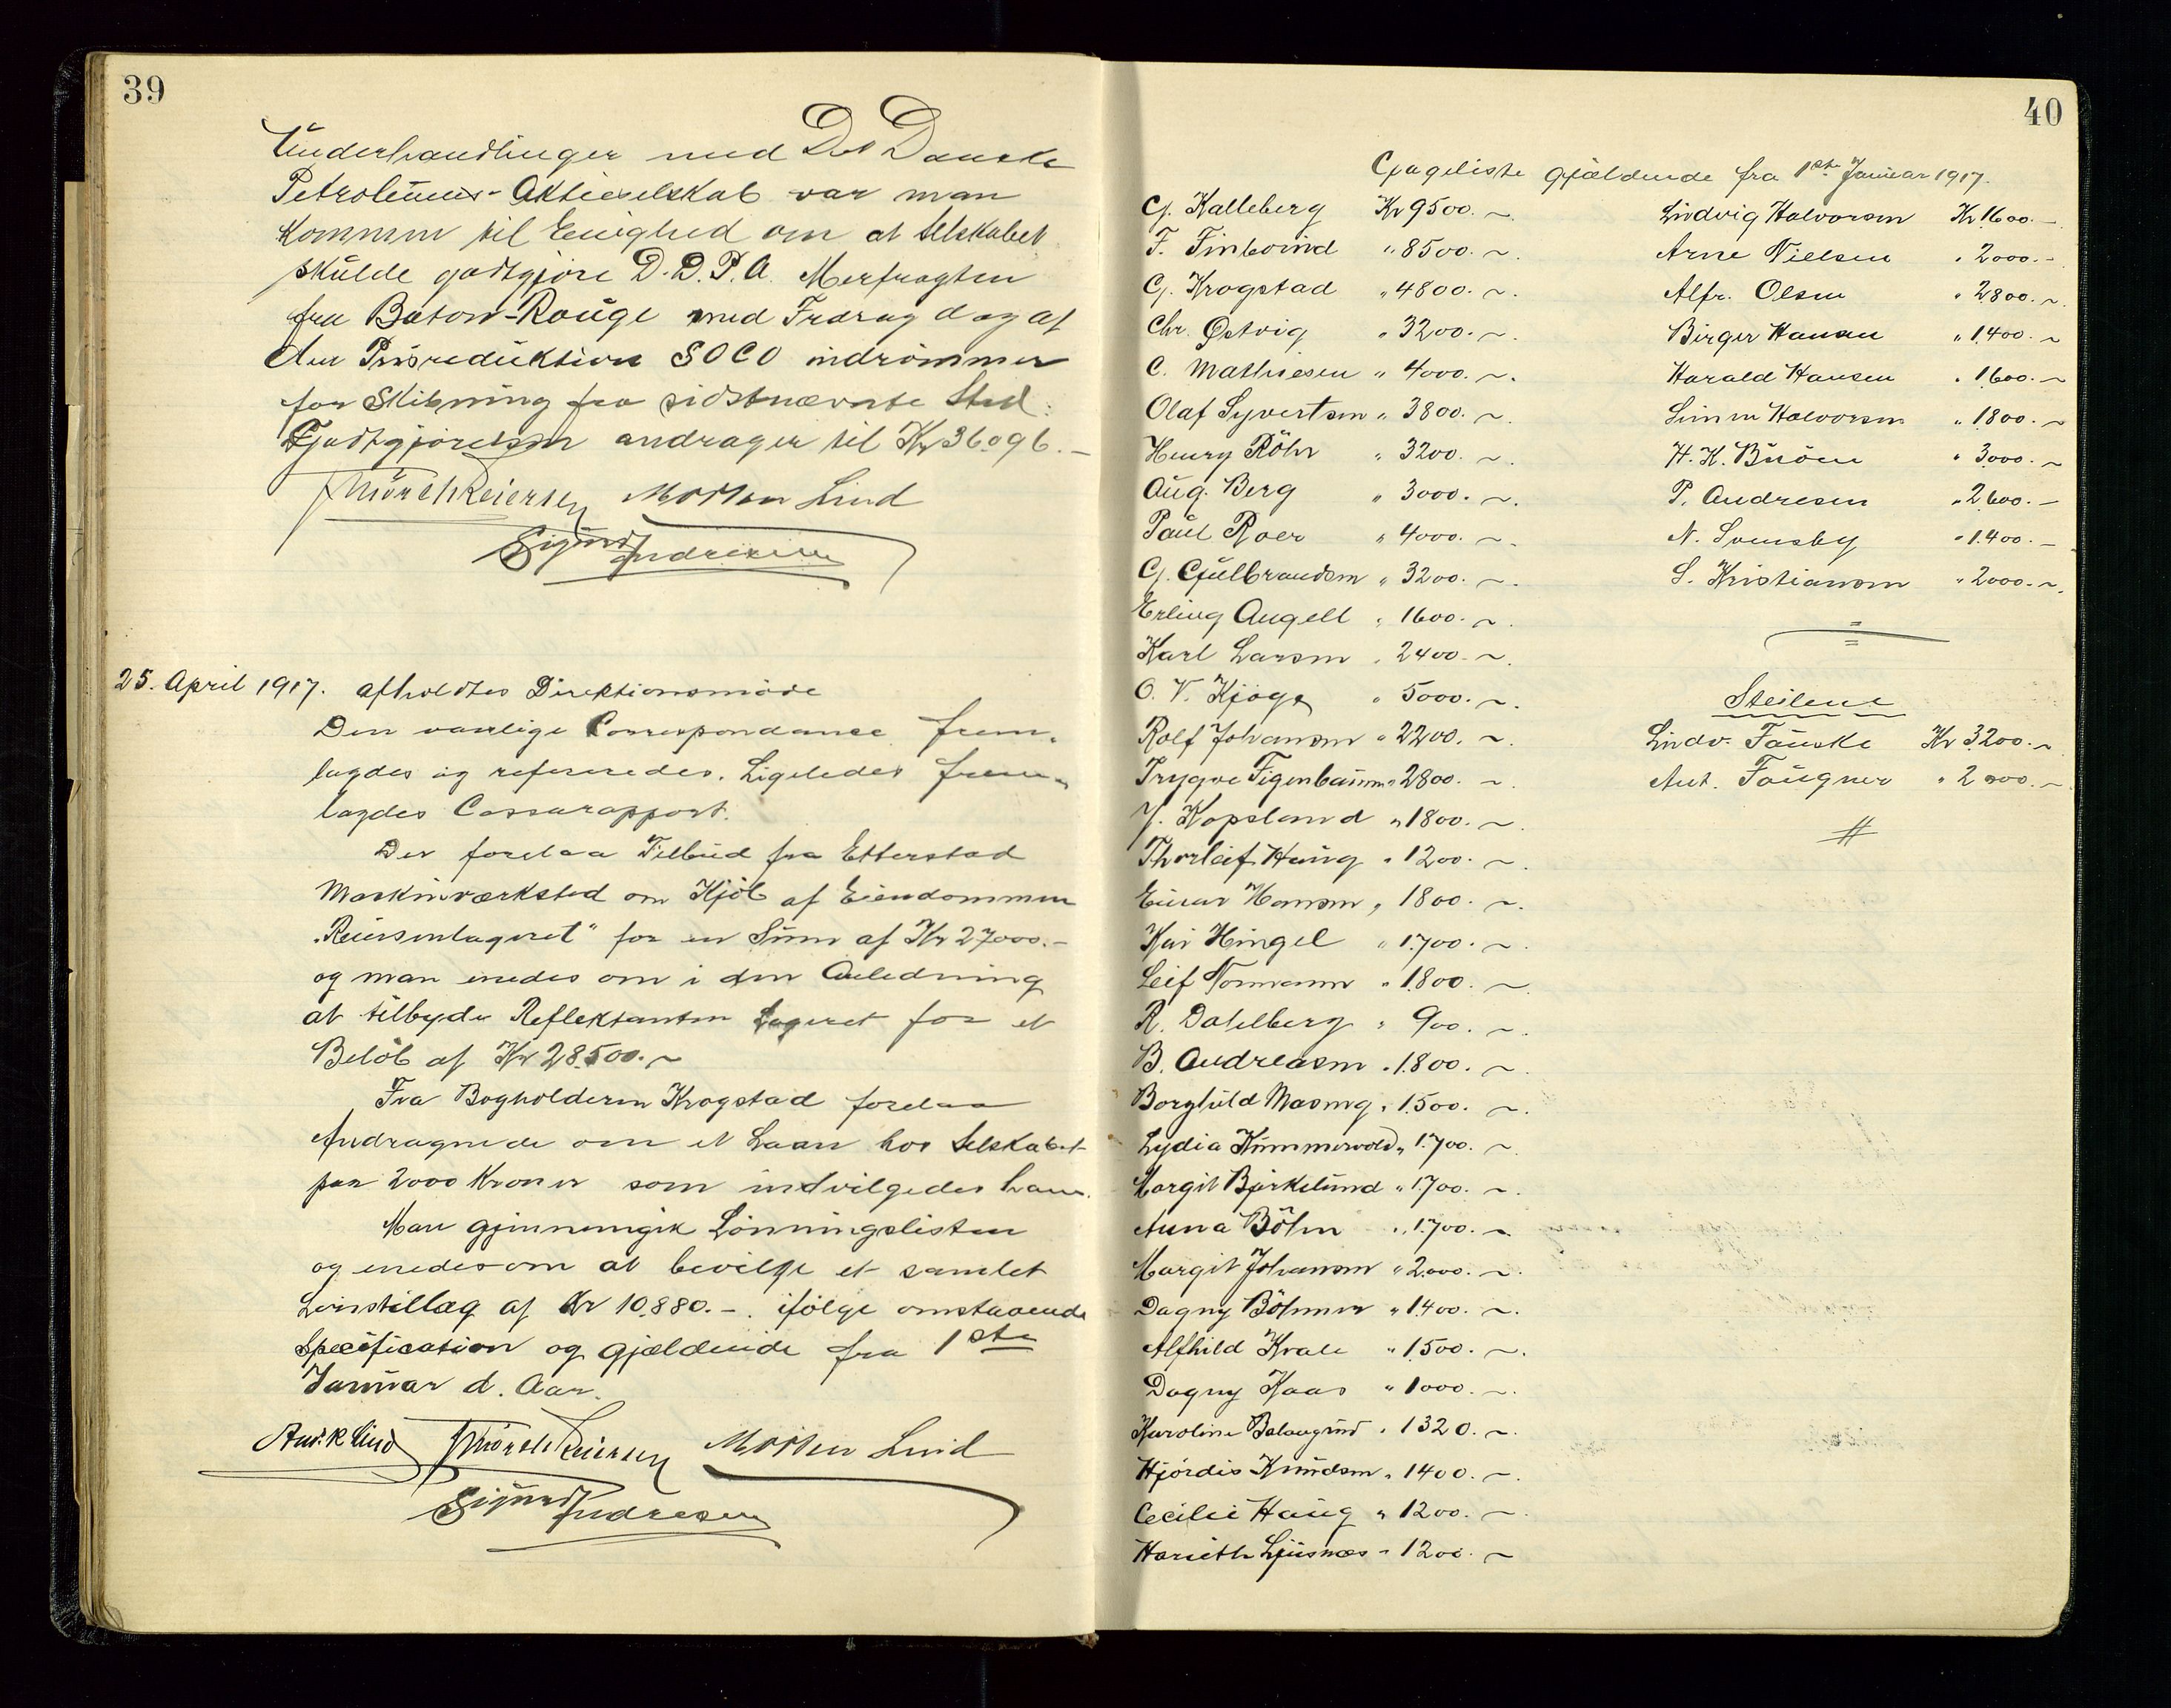 39
Underhandlinger med Det Danske
Petroleums-Aktieselskab var man
kommen til Enighed om at Selskabet
skulde godtgjöre D.D.P.A. Merfragten
fra Baton-Rouge med Fradrag dog af
den Prisreduktion SOCO indrömmer
for Skibning fra sidstnævnte Sted.
Godtgjörelsen andrager til Kr 36.096.-
Mörch Reiersen Morten Lind
Sigurd Andresen
25. April 1917. afholdtes Direktionsmöde
Den vanlige Correspondance frem-
lagdes og refereredes. Ligeledes frem-
lagdes Cassarapport.
Der forelaa Tilbud fra Etterstad
Maskinværksted om Kjöb af Eiendommen
"Reiersenlageret" for en Sum af Kr 27000.-
og man enedes om i den Anledning
at tilbyde Reflektanten Lageret for et
Belöb af Kr 28.500.~
Fra Bogholderen Krogstad forelaa
Andragende om et Laan hos Selskabet
paa 2000 Kroner som indvilgedes ham.
Man gjennemgik Lönningslisten
og enedes om at bevilge et samlet
Lönstillæg af Kr 10.880.-. ifölge omstaaende
Specification og gjældende fra 1ste
Januar d. Aar.
And. R Lind Mörch Reiersen Morten Lind
Sigurd Andresen
40
Gageliste gjældende fra 1ste Januar 1917.
G. Kalleberg Kr 9500.~
F. Finborud " 8500.~
G. Krogstad " 4800.~
Chr. Östvig " 3200.~
C. Mathiesen " 4000.~
Olaf Syvertsen " 3800.~
Henry Röhr " 3200.~
Aug. Berg " 3000.~
Paul Roer " 4000.~
G. Gulbrandsen " 3200.~
Erling Angell " 1600.~
Karl Larsen " 2400.~
O. V. Kjöge " 5000.~
Rolf Johansen " 2200.~
Trygve Figenbaum " 2800.~
J. Kopsland " 1800.~
Thorleif Haug " 1200.~
Einar Hansen " 1800.~
Kai Hingel " 1.700.~
Leif Normann " 1.800.~
R. Dahlberg " 900.~
B. Andreasen " 1.800.~
Borghild Masing " 1.500.~
Lydia Kummervold " 1.700.~
Margit Bjerkelund " 1.700.~
Anna Böhn " 1.700.~
Margit Johansen " 2.000.~
Dagny Böhmer " 1.400.~
Alfhild Kvale " 1.500.~
Dagny Kaas " 1000.~
Karoline " 1320.~
Hjördis Knudsen " 1400.~
Cecilie Haug " 1200.~
Harieth " 1200.~
Ludvig Halvorsen Kr 1600.-
Arne Nielsen " 2000.-
Alfr. Olsen " 2800.~
Birger Hansen " 1.400.~
Harald Hansen " 1600.~
Simen Halvorsen " 1800.~
H. K. " 3000.~
P. Andresen " 2.600.-
N. Svensby " 1.400.-
S. Kristiansen " 2000.~
Steilene
Ludv. Fauske Kr 3200.~
Ant. Faugner " 2000.~